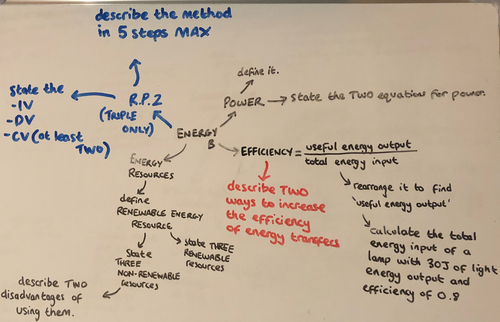 describe the method
in 5 steps MAX
State the
-IV
-DV
-CV (at least
TWO)
R.P.2
(TRIPLE
ONLY)
define it.
POWER → State the TWO equation for power.
ENERGY
B
EFFICIENCY = useful energy output
total energy input
rearrange it to find
'useful energy output'
calculate the total
energy input of a
lamp with 30J of light
energy output and
efficiency of 0.8
describe TWO
ways to increase
the efficiency
of energy transfers
ENERGY
RESOURCES
define
RENEWABLE ENERGY
RESOURCE
State THREE
RENEWABLE
resources
State
THREE
NON-RENEWABLE
resources
describe TWO
disadvantages of
using them.